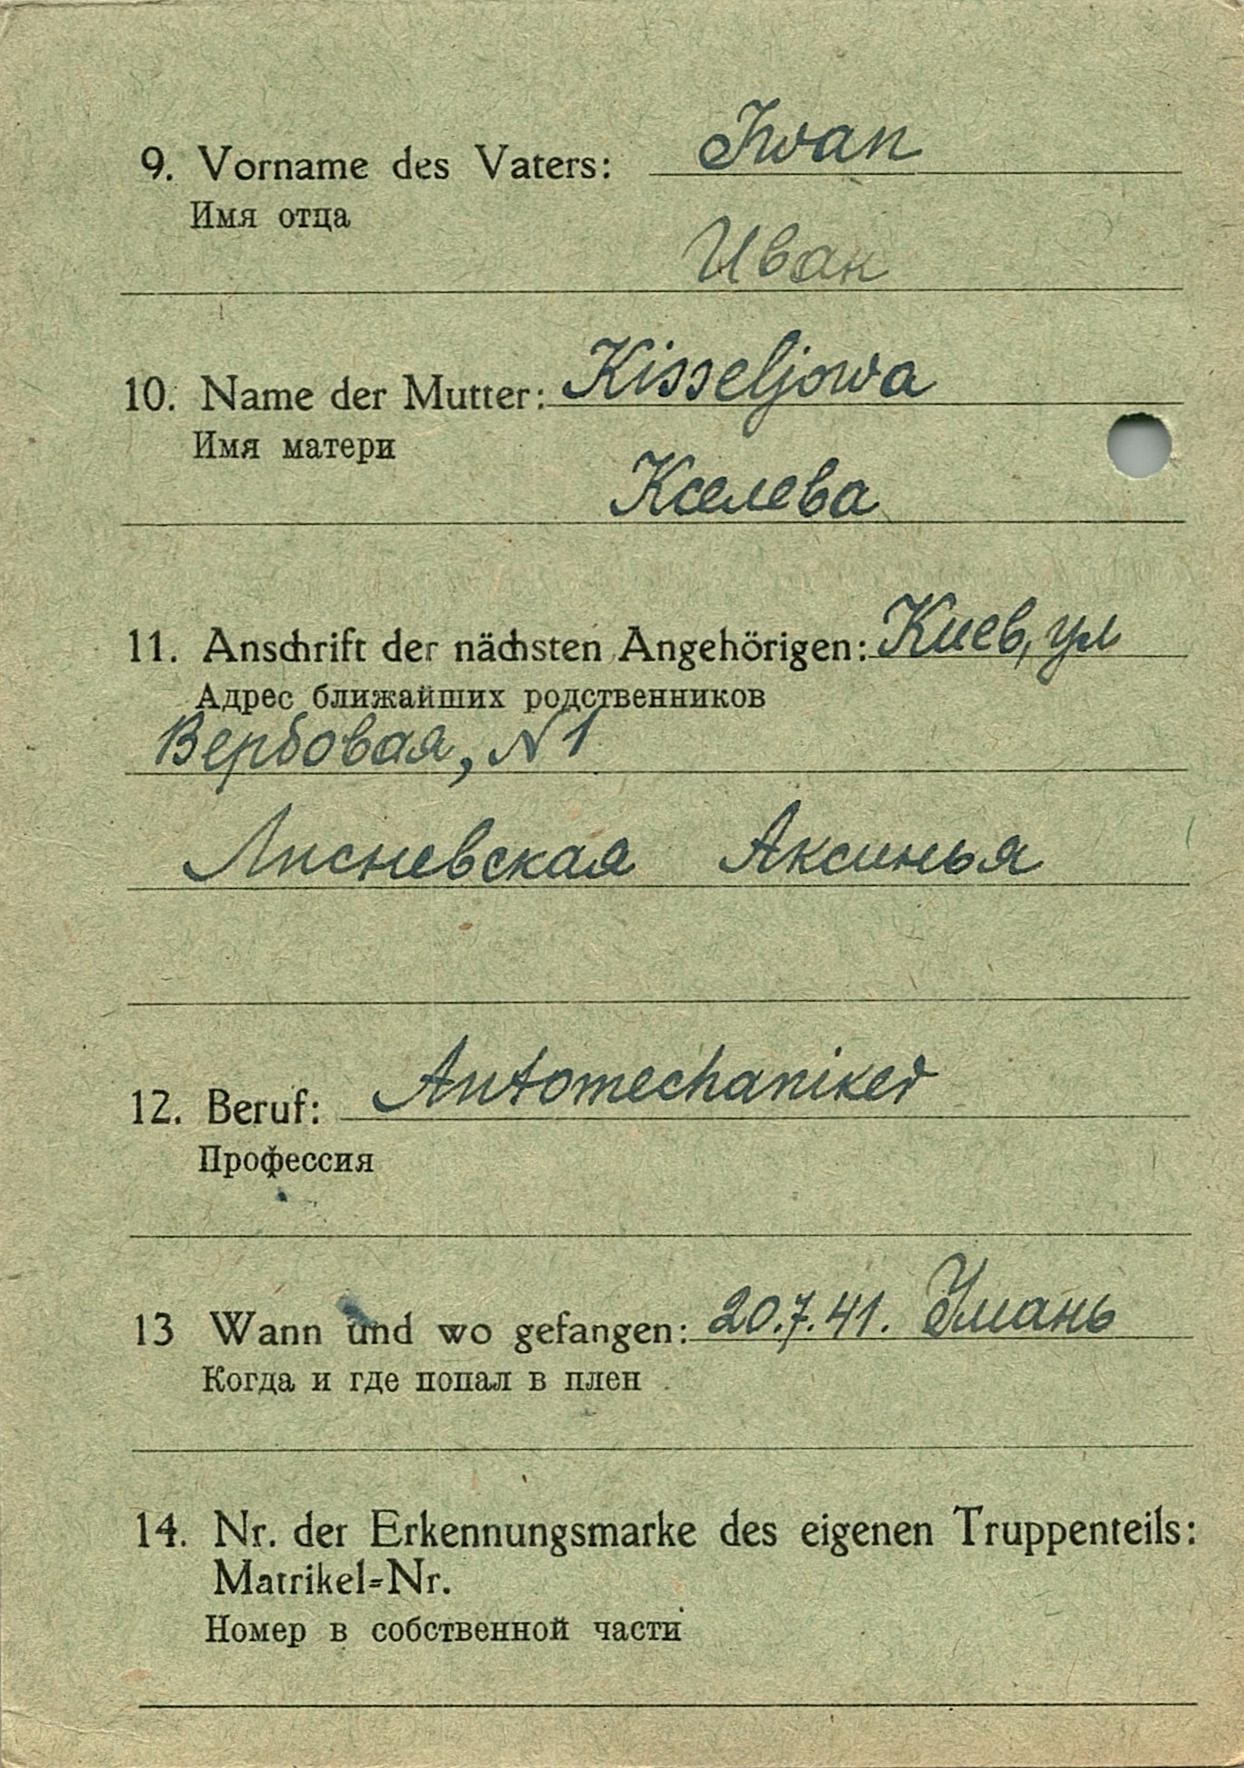 9. Vorname des Vaters: Iwan
Имя отца
Иван
10. Name der Mutter: Kisseljowa
Имя матери
Кселева
11. Anschrift der nächsten Angehörigen: Киев, ул
Адрес ближайших родственников
Вербовая, N1
Лисневская Аксинья
12. Beruf: Automechaniker
Профессия
13 Wann und wo gefangen: 20.7.41. Умань
Когда и где попал в плен
14. Nr. der Erkennungsmarke des eigenen Truppenteils:
Matrikel=Nr.
Номер в собственной части